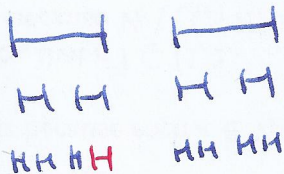 H H
H H H H
H H H H H H H H